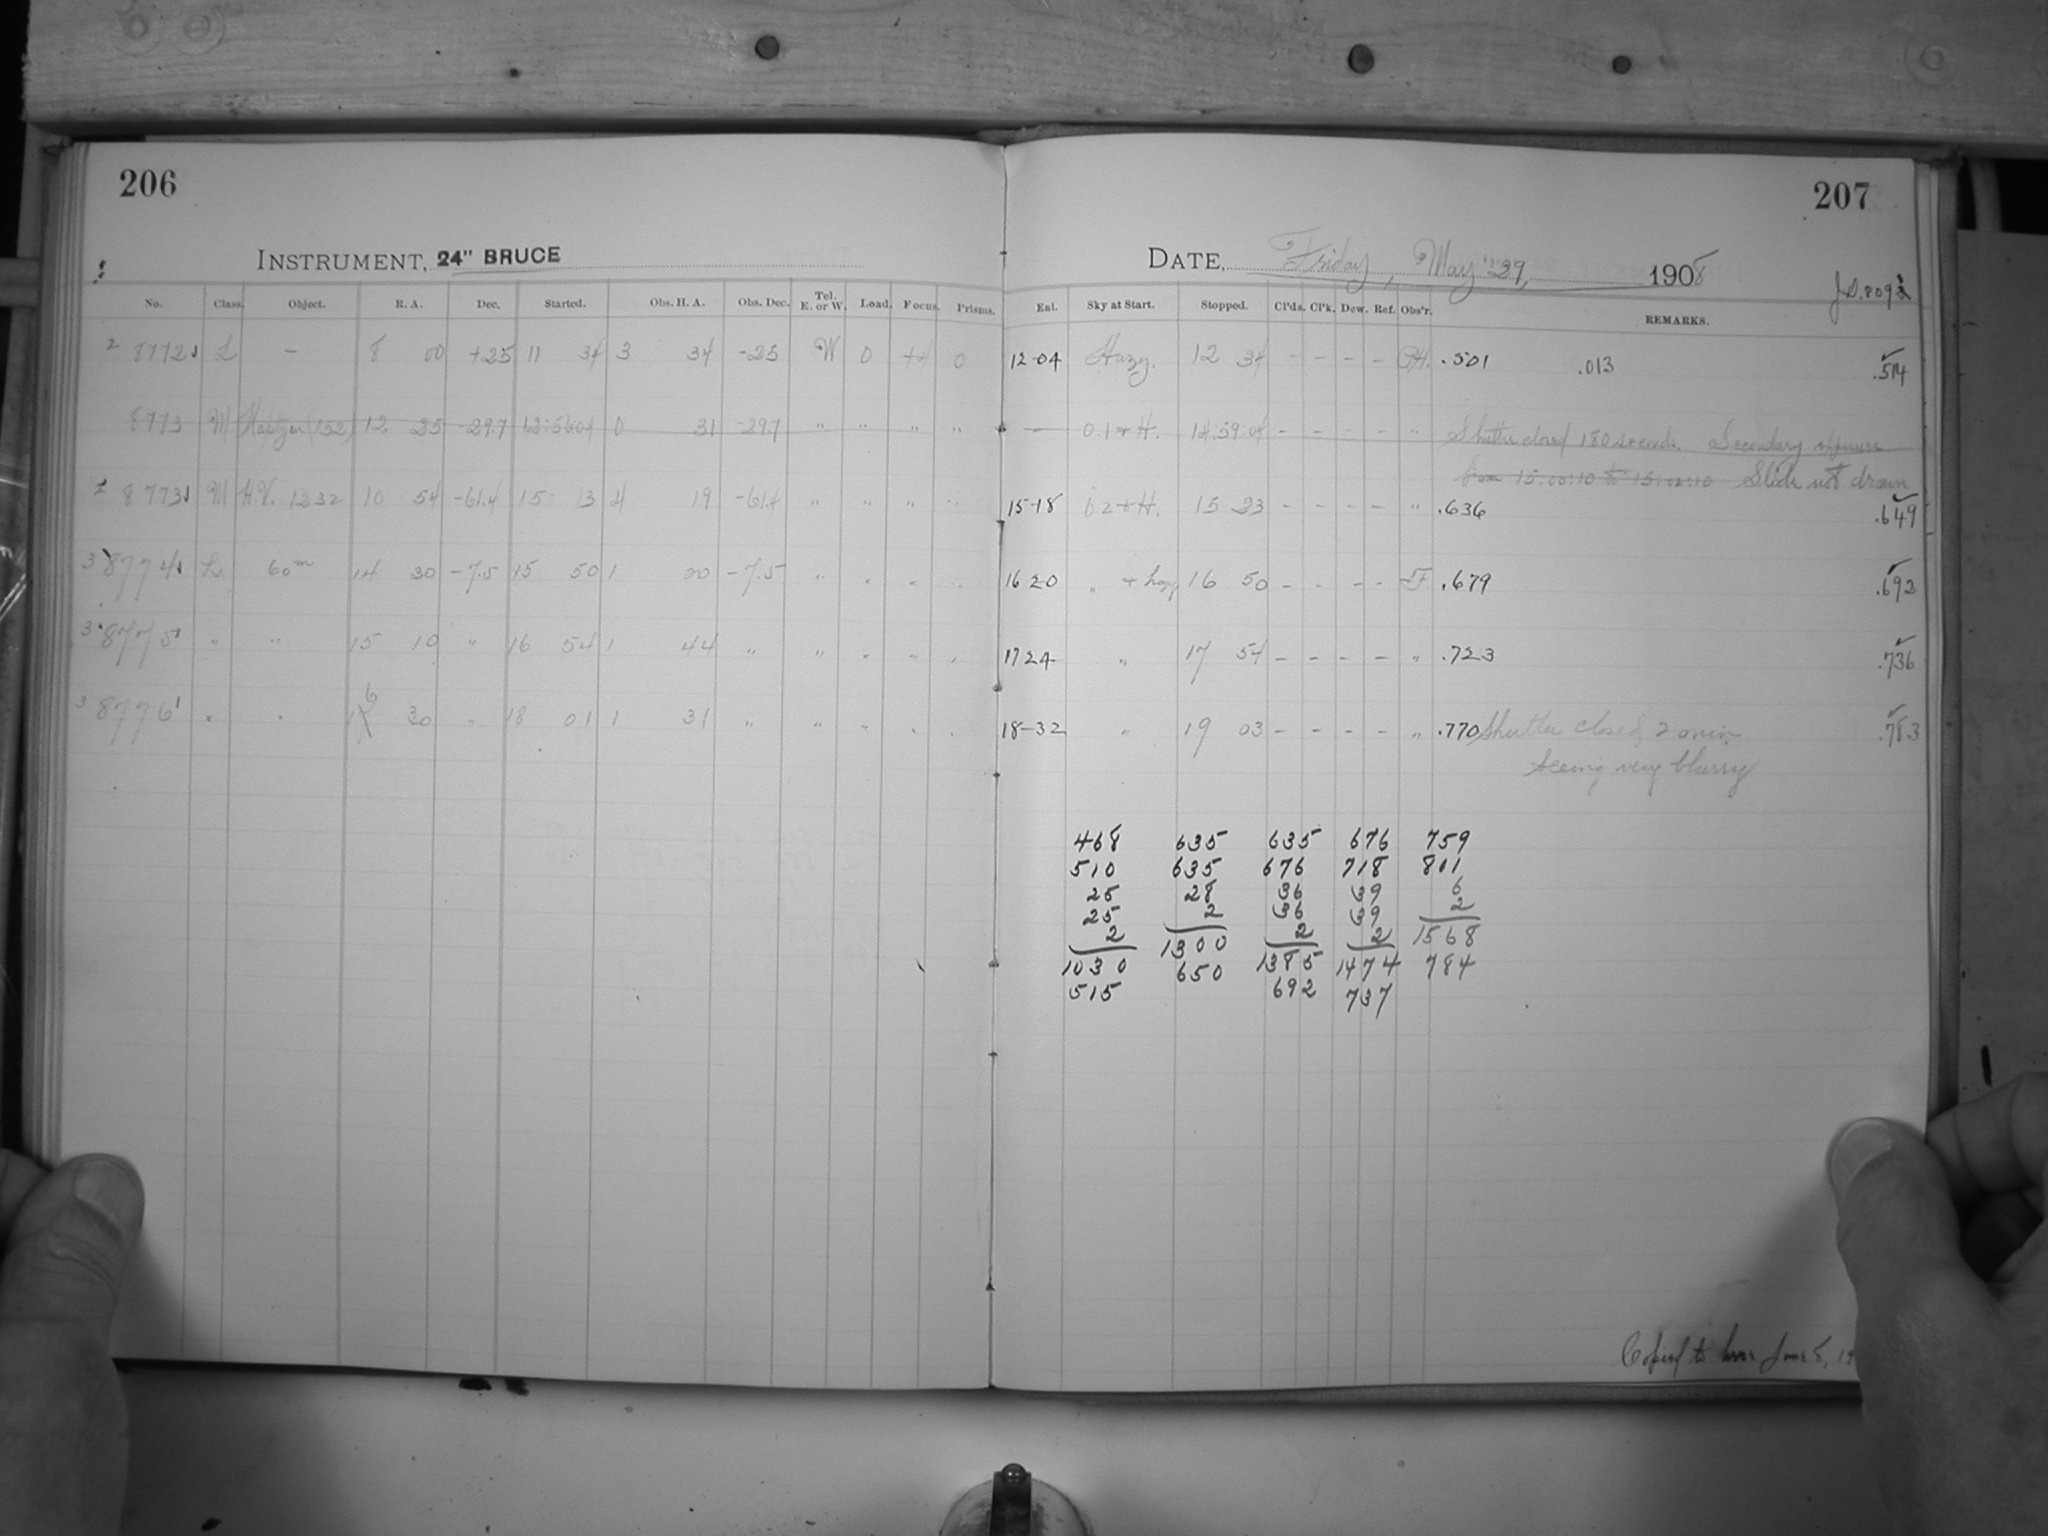 206
INSTRUMENT, 24" BRUCE
No. Class. Object. R. A. Dec. Started. Obs. H. A. Obs. Dec. Tel. E. or W. Load. Focus. Prisms.
2 8772 L — 8 00 +25 11 34 3 34 -25 W 0 +4 0
8773 M (152) 12 25 -29.7 0 31 -29.7 " " " "
8773 M H.V. 1232 10 54 -61.4 15 13 4 19 -61.4 " " " "
3 8774 L 60m 14 30 -7.5 15 50 1 20 -7.5 " " " "
3 8775 " " 15 10 " 16 54 1 44 " " " " "
3 8776 " " 16 30 " 18 01 1 31 " " " " "
207
DATE, Friday, May 29, 1908
Enl. Sky at Start. Stopped. Cl'ds. Cl'k. Dew. Ref. Obs'r. REMARKS.
12-04 Hazy. 12 34 - - - - .501 .013 .514
— 0.1 + H. 14:59:04 - - - - " Shutter closed 180 seconds. Secondary exposure
from 15:00:10 to 15:02:10 Slide not drawn
15-18 0.2 + H. 15 23 - - - - " .636 .649
16 20 " + hazy 16 50 - - - - F .679 .692
17 24 " 17 54 - - - - " .723 .736
18-32 " 19 03 - - - - " .770 Shutter closed 2 min. .783
Seeing very blurry
468 635 635 676 759
510 635 676 718 801
25 28 36 39 6
25 2 36 39 2
2 1300 2 2 1568
1030 650 1385 1474 784
515 692 737
Copied to here June 8, 19